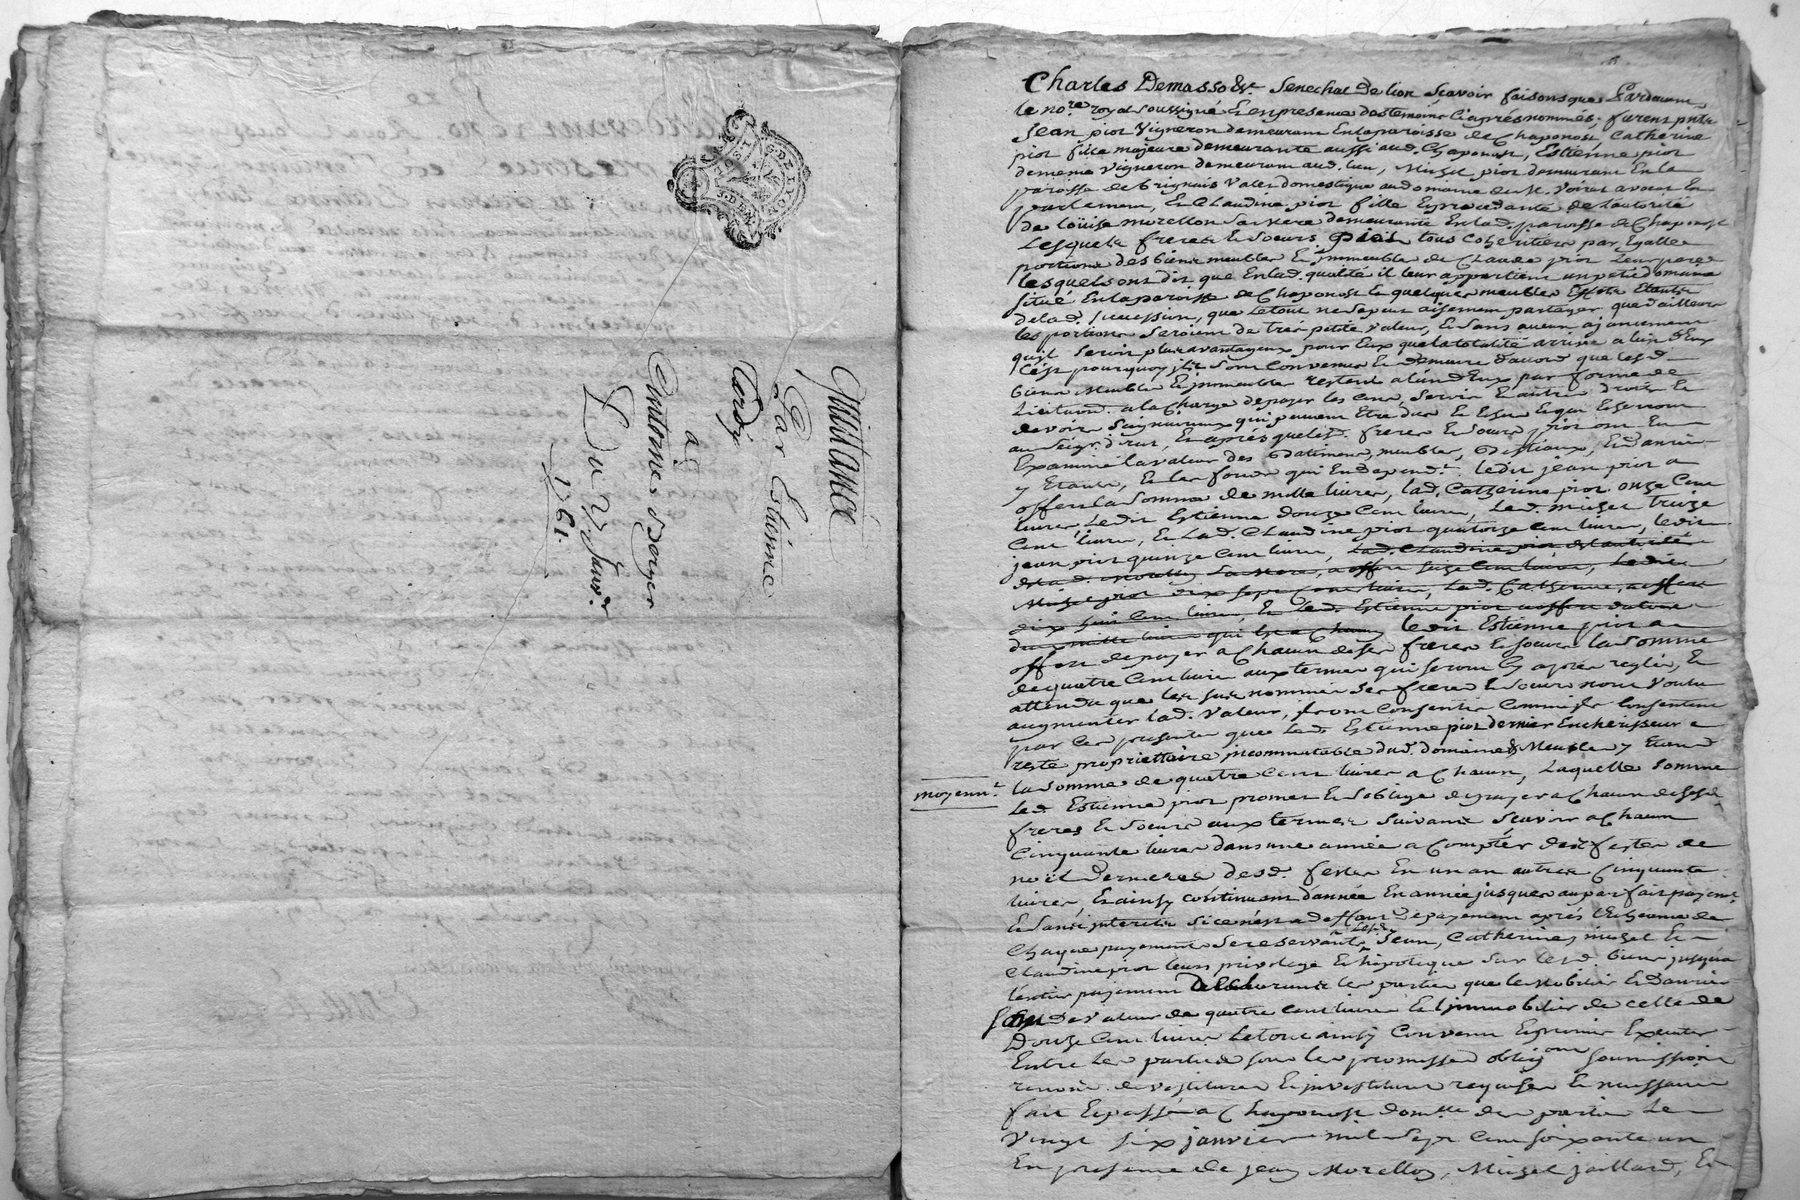 Quittance
Par Estienne
Tardy
a
Antoine Berger
Du V Janvr.
1761.
Charles Demasso Esr. Senechal de lion Scavoir faisons que Pardevant
le nore. royal soussigné Et en presence des temoins Cy aprés nommés, furent pnts
Jean pior Vigneron demeurant En la paroisse de Chaponost, Catherine
pior fille majeure demeurante aussi aud. Chaponost, Estienne pior
de meme Vigneron demeurant aud. lieu, Michel pior demeurant En la
paroisse de Brignais Valet domestique au domaine de Mr. avocat En
parlement, Et Claudine pior fille Et procedante de l'autorité
de Loüise morellon sa mere demeurante En lad. paroisse de Chaponost
Lesquels freres Et soeurs pior tous coheritiers par Egalles
portions des biens meubles Et immeubles de Claude pior leur pere
lesquels ont dit que En lad. qualité il leur appartient un petit domaine
situé En la paroisse de Chaponost Et quelques meubles Effets Etants
de lad. succession, que le tout ne se peut aisement partager, que d'ailleurs
les portions seroient de tres petite valeur, Et sans aucun ajancement
qu'il seroit plus avantageux pour Eux que la totalité arrive a l'un d'Eux
C'est pourquoy ils sont convenus Et demeuré d'accord que lesd.
biens meubles Et immeubles restent a l'un d'Eux par forme de
licitaon. a la charge de payer les cens, servis Et autres droits Et
devoirs seigneuriaux qui peuvent Etre dus Et Echus Et qui Echerront
au seigr. direct, Et aprés que lesd. freres Et soeurs pior ont Eu
Examiné la valeur des Batiments, meubles, Bestiaux, Et danrées
y Etants, Et les fonds qui En dependt. ledit jean pior a
offert la somme de mille livres, lad. Catherine pior onze Cent
livres, Ledit Estienne douze Cent livres, Led. michel Treize
Cent livres, Et Lad. Claudine pior quatorze Cent livres, ledit
jean pior quinze Cent livres, lad. Claudine pior de l'autorité
de lad. Morellon sa mere, a offert seize Cent livres, Ledit
Michel pior dix sept Cent livres, Lad. Catherine, a offert
dix huit Cent livres, Et Led. Estienne pior a offert
deux mille livres qui est a Chacun ledit Estienne pior a
offert de payer a Chacun de ses freres Et soeurs la somme
de quatre Cent livres aux termes qui seront Cy aprés reglés, Et
attendu que les sus nommés ses freres Et soeurs n'ont voulu
augmenter lad. valeur, ont consentis comme ils consentent
par ces presentes que led. Estienne pior dernier Encherisseur
reste proprietaire incommutable dud. domaine Meubles y Etants
moyennt.
la somme de quatre Cent livres a Chacun, Laquelle somme
Led. Estienne pior promet Et s'oblige de payer a Chacun de sesd.
freres Et soeurs aux termes suivants scavoir a Chacun
Cinquante livres dans une année a compter des festes de
noël dernieres desd. festes En un an autres Cinquante
livres, Et ainsy continuant d'année En année jusques au parfait payemt.
Et sans interests si ce n'est a deffaut de payement aprés l'Echeance de
Chaque payement se reservants lesd. Jean, Catherine, michel Et
Claudine pior leurs privilege Et hipoteque sur lesd. biens jusqu'a
l'entier payement Declarants les parties que le Mobilier Et danrées
sont de valeur de quatre cent livres Et l'immobilier de celle de
Douze Cent livres Le tout ainsy Convenu Et promis Executer
Entre les parties sous les promesses obligaons soumissions
renonc. devestitures Et investitures requises Et necessaires
fait Et passé a Chaponost domlle. des parties Le
vingt six janvier mil sept Cent soixante un
En presence de jean Morellon, Michel jaillard, Et